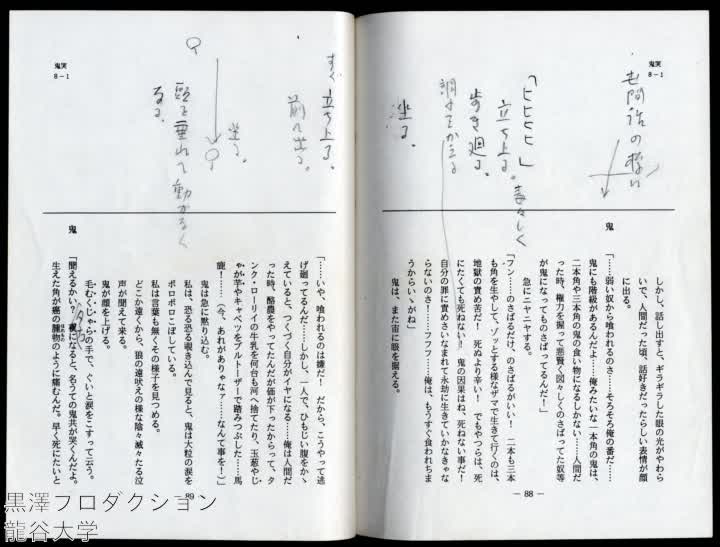 鬼哭
8-1
「ヒヒヒヒ」
立ち上る。
歩き廻る。
坐る。
鬼
しかし、話し出すと、ギラギラした眼の光がやわら
いで、人間だった頃、話好きだったらしい表情が顔
に出る。
「……弱い奴から喰われるのさ……そろそろ俺の番だ……
鬼にも階級があるんだよ……俺みたいな一本角の鬼は、
二本角や三本角の鬼の食い物になるしかない……人間だ
った時、権力を握って悪賢く図々しくのさばってた奴等
が鬼になってものさばってるんだ！」
急にニヤニヤする。
「フン……のさばるだけ、のさばるがいい！　二本も三本
も角を生やして、ゾッとする様なザマで生きて行くのは、
地獄の責め苦だ！　死ぬより辛い！　でもやつらは、死
にたくても死ねない！　鬼の因果はね、死ねない事だ！
自分の罪に責めさいなまれて永劫に生きていかなきゃな
らないのさ！……フフフ……俺は、もうすぐ食われちま
うからいゝがね」
鬼は、また宙に眼を据える。
— 88 —
鬼哭
8-1
すぐ立ち上る。
前に出る。
坐る。
頭を垂れて動かなく
なる。
鬼
「……いや、喰われるのは嫌だ！　だから、こうやって逃
げ廻ってるんだ……しかし、一人で、ひもじい腹をかゝ
えていると、つくづく自分がイヤになる……俺は人間だ
った時、酪農をやってたんだが価が下ったからって、タ
ンク・ローリイの牛乳を何台も河へ捨てたり、玉葱やじ
ゃが芋やキャベツをブルトーザーで踏みつぶした……馬
鹿！……（今、あれがありゃな ァ……なんて事を！こ）
鬼は急に黙り込む。
私は、恐る恐る覗き込んで見ると、鬼は大粒の涙を
ポロポロこぼしている。
私は言葉も無くその様子を見つめる。
どこか遠くから、狼の遠吠えの様な陰々滅々たる泣
声が聞えて来る。
鬼が顔を上げる。
毛むくじゃらの手で、ぐいと涙をこすって云う。
「聞えるかい？　夜になると、名うての鬼共が哭くんだよ。
生えた角が癌の腫物のように痛むんだ。早く死にたいと
89 —
黒澤プロダクション
龍谷大学